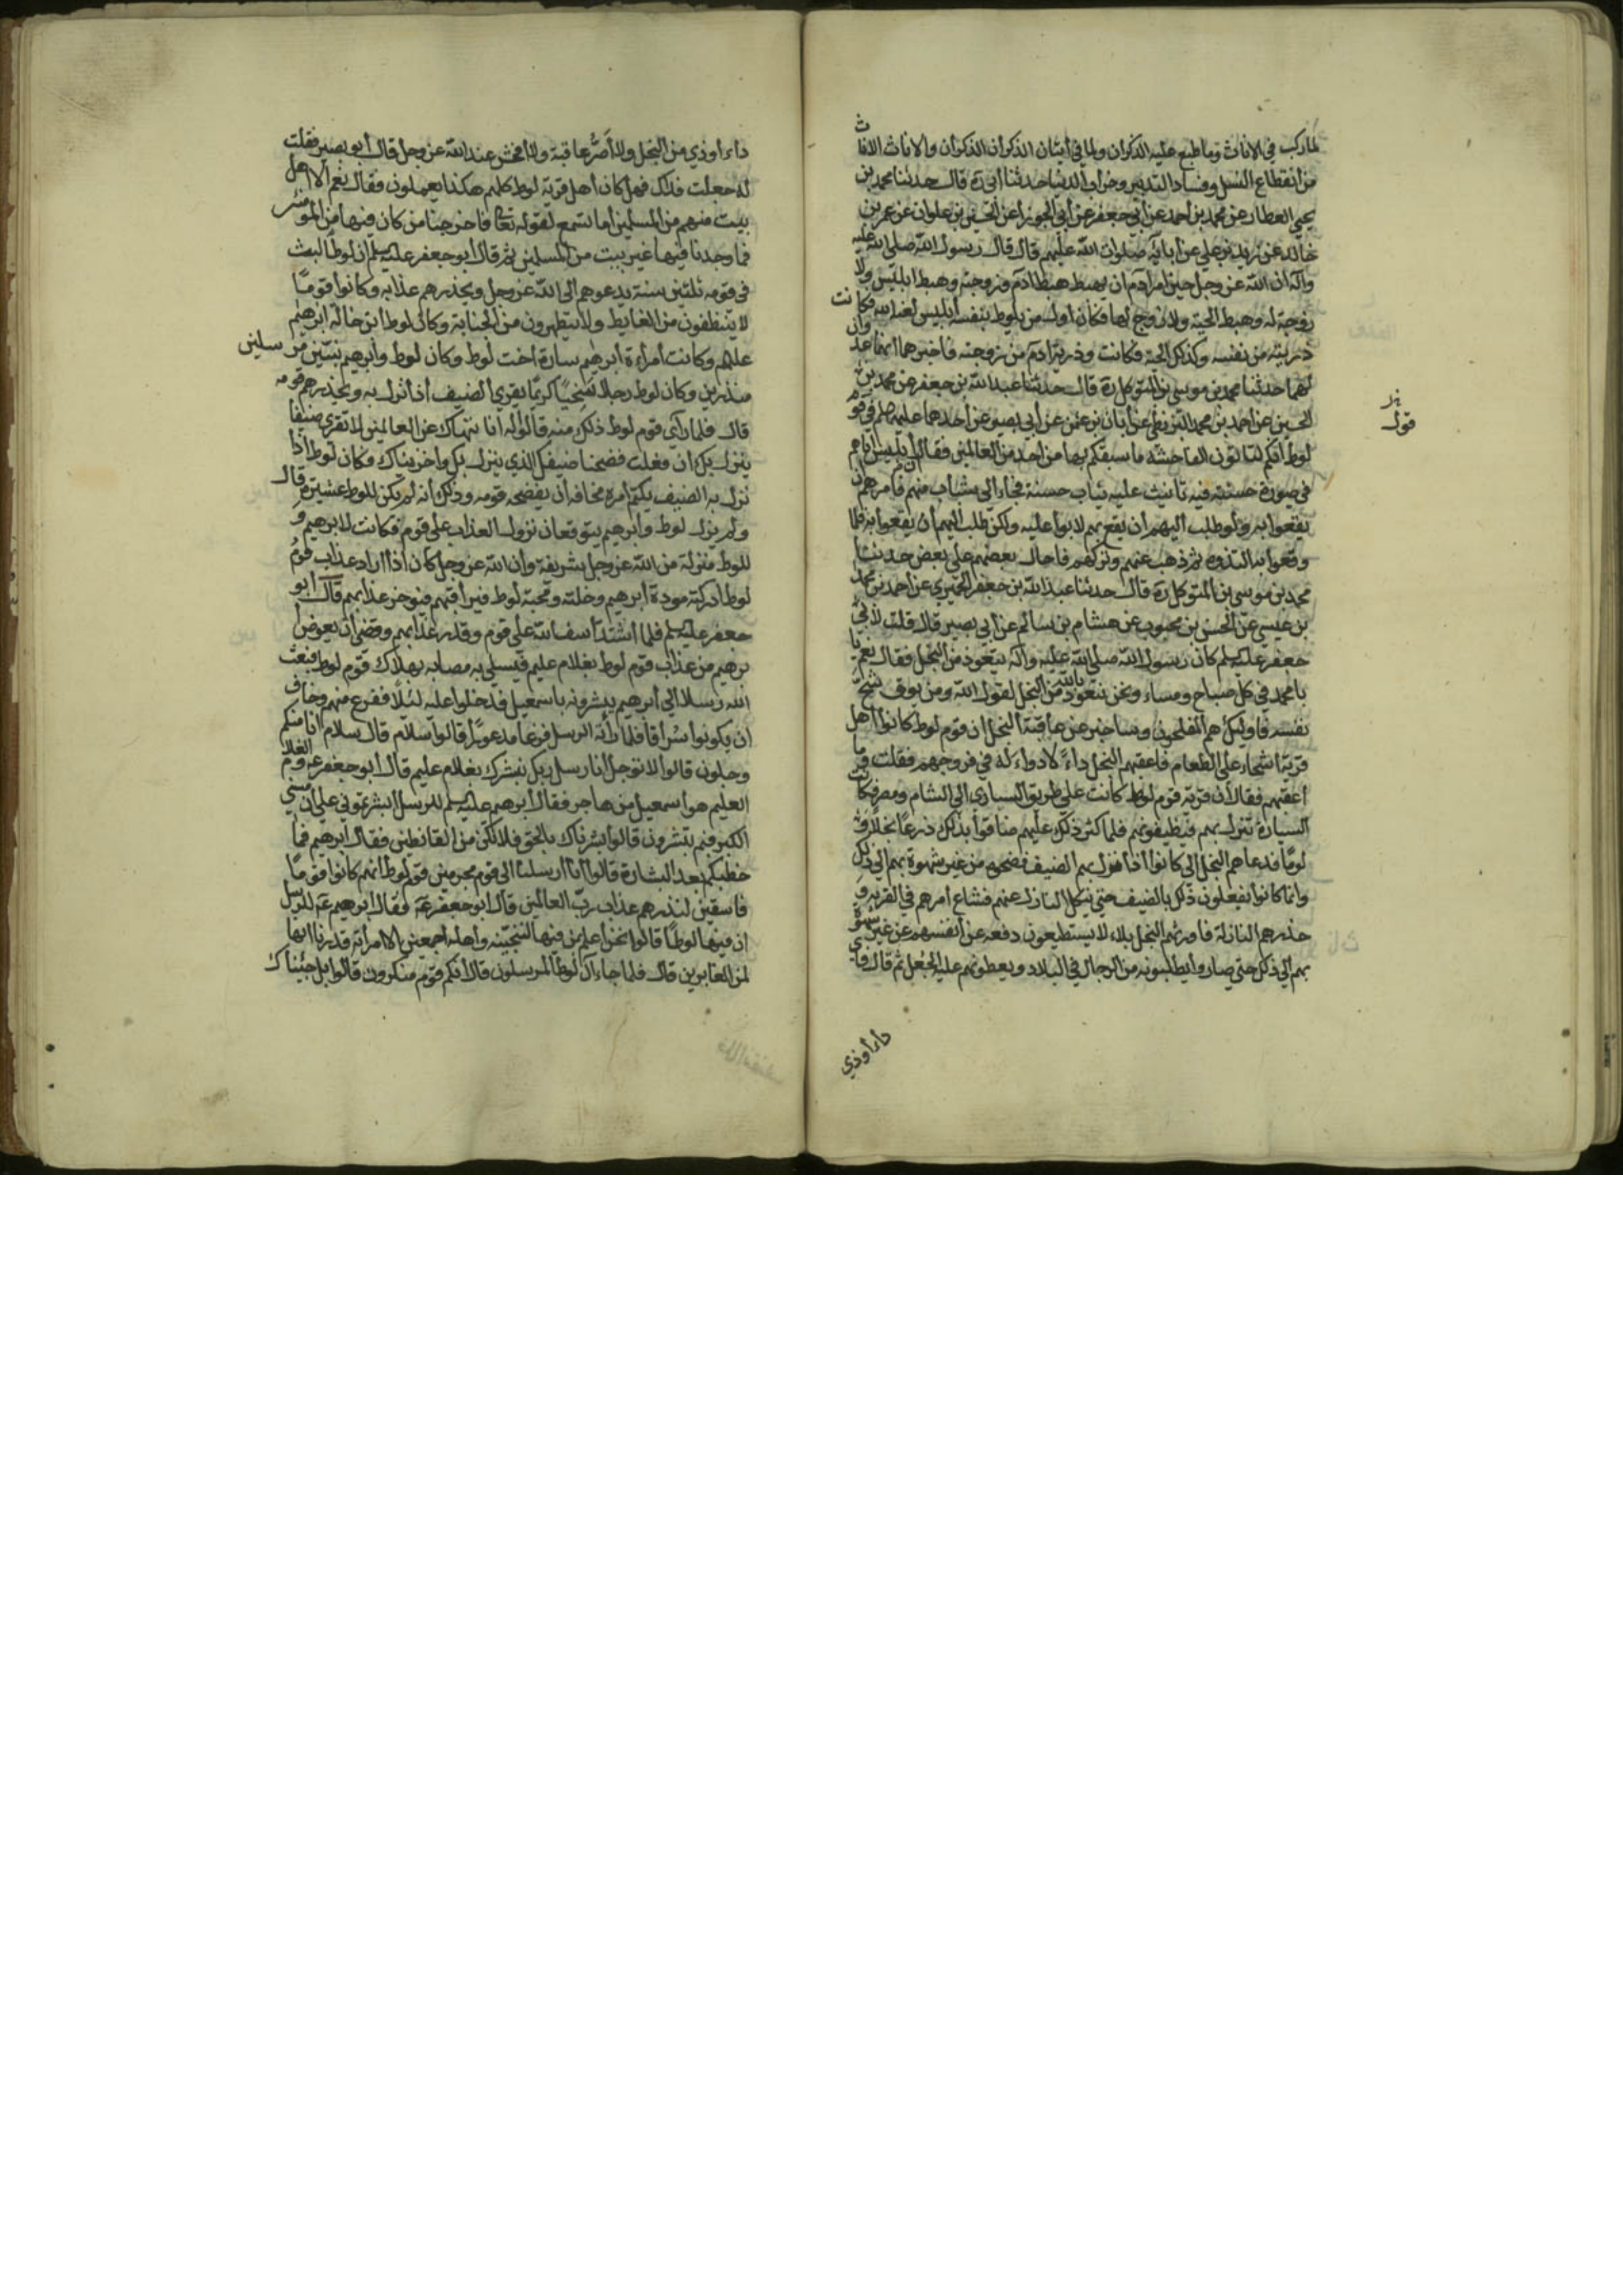 لما ركب في الاناث وما طبع عليه الذكران ولما في أتيان الذكران الذكران والاناث الاناث
من انقطاع النسل وفساد التدبير وخراب الدنيا حدثنا أبي ره قال حدثنا محمد بن
يحيى العطار عن محمد بن احمد عن أبي جعفر عن أبي الجوزا عن الحسين بن علوان عن عمر بن
خالد عن زيد بن علي عن آبائه صلوات الله عليهم قال قال رسول الله صلى الله عليه
وآله ان الله عز وجل حين امر آدم ان يهبط هبط آدم وزوجته وهبط ابليس ولا
زوجة له وهبط الحية ولا زوج لها فكان اول من يلوط بنفسه أبليس لعنه الله فكانت
ذريته من نفسه وكذلك الحية وكانت وذرية آدم من زوجته فاخبرهما انهما عدوان
لهما حدثنا محمد بن موسى بن المتوكل ره قال حدثنا عبد الله بن جعفر عن محمد بن
الحسين عن احمد بن محمد البزنطي عن أبان بن عثمن عن أبي بصير عن أحدهما عليهما سلم في قوم
لوط انكم لتاتون الفاحشة ما سبقكم بها من احد من العالمين فقال أن ابليس اتاهم
في صورة حسنة فيه تأنيث عليه ثياب حسنة فجاء الى شباب منهم فامرهم أن
يقعوا به ولو طلب اليهم ان يقع بهم لابوا عليه ولكن طلب اليهم أن يقعوا به فلما
وقعوا به التذوه ثم ذهب عنهم وتركهم فاحال بعضهم على بعض حدثنا
محمد بن موسى بن المتوكل ره قال حدثنا عبد الله بن جعفر الحميري عن احمد بن محمد
بن عيسى عن الحسن بن محبوب عن هشام بن سالم عن أبي بصير قال قلت لأبي
جعفر عليه سلم كان رسول الله صلى الله عليه وآله يتعوذ من البخل فقال نعم يا
با محمد في كل صباح ومساء ونحن نتعوذ بالله من البخل لقول الله ومن يوق شح
نفسه فاوليك هم المفلحون وساخبر عن عاقبة البخل ان قوم لوط كانوا اهل
قرية اشحاء على الطعام فاعقبهم البخل داءً لا دواء له في فروجهم فقلت وما
اعقبهم فقال أن قرية قوم لوط كانت على طريق السيارة الى الشام ومصر فكانت
السيارة تنزل بهم فيضيفونهم فلما كثر ذلك عليهم ضاقوا بذلك ذرعًا بخلًا و
لومًا فدعاهم البخل الى كانوا اذا نزل بهم الضيف فضحوه من غير شهوة بهم الى ذلك
وانما كانوا يفعلون ذلك بالضيف حتى ينكل النازل عنهم فشاع امرهم في القرية و
حذرهم النازلة فاورثهم البخل بلاء لا يستطيعون دفعه عن انفسهم عن غير شهوة
بهم الى ذلك حتى صاروا يطلبونه من الرجال في البلاد ويعطونهم عليه الجعل ثم قال فاي
قول
داء أوذي
داء أوذي من البخل ولا أضرّ عاقبة ولا افحش عند الله عز وجل قال أبو بصير فقلت
له جعلت فداك فهل كان أهل قرية لوط كلهم هكذا يعملون فقال نعم الا اهل
بيت منهم من المسلمين اما تسمع لقوله تعالى فاخرجنا من كان فيها من المومنين
فما وجدنا فيها غير بيت من المسلمين ثم قال أبو جعفر عليه سلم ان لوطًا لبث
في قومه ثلثين سنة يدعوهم الى الله عز وجل ويحذرهم عذابه وكانوا قومًا
لا يتنظفون من الغايط ولا يتطهرون من الجنابة وكان لوط ابن خالة ابرهيم
عليهم وكانت امراءة ابرهيم سارة اخت لوط وكان لوط وابرهيم نبيين مرسلين
منذرين وكان لوط رجلا سخيًا كريمًا يقري الضيف أذا نزل به ويحذرهم قومه
قال فلما رآى قوم لوط ذلك منه قالوا له انا ننهاك عن العالمين لا تقري ضيفًا
ينزل بك ان فعلت فضحنا ضيفك الذي ينزل بك واخزيناك وكان لوط اذا
نزل به الضيف يكتم امره مخافة أن يفضحه قومه وذلك أنه لم يكن للوط عشيرة قال
ولم يزل لوط وابرهيم يتوقعان نزول العذاب على قوم فكانت لابرهيم و
للوط منزلة من الله عز وجل شريفة وان الله عز وجل كان اذا اراد عذاب قوم
لوط ادركته مودة ابرهيم وخلته ومحبة لوط فيراقبهم فيوخر عذابهم قال ابو
جعفر عليه سلم فلما اشتد أسف الله على قوم وقدر عذابهم وقضى أن يعوض
برهيم من عذاب قوم لوط بغلام عليم فيسلي به مصابه بهلاك قوم لوط فبعث
الله رسلا الى أبرهيم يبشرونه باسمعيل فدخلوا عليه ليلًا ففزع منهم وخاف
ان يكونوا سُراقا فلما رأته الرسل فزعًا مدعورًا قالوا سلام قال سلام انا منكم
وجلون قالوا لا توجل أنا رسل ربك نبشرك بغلام عليم قال أبو جعفر عه والغلام
العليم هو اسمعيل من هاجر فقال أبرهيم عليه سلم للرسل ابشرتموني على ان مسني
الكبر فبم تبشرون قالوا بشرناك بالحق فلا تكن من القانطين فقال ابرهيم فما
خطبكم بعد البشارة قالوا انا ارسلنا الى قوم مجرمين قوم لوط انهم كانوا قومًا
فاسقين لننذرهم عذاب ربّ العالمين قال أبو جعفر عه فقال ابرهيم عه للرسل
ان فيها لوطًا قالوا نحن اعلم بمن فيها لننجينه واهله اجمعين الا امراته قدرنا انها
لمن الغابرين قال فلما جاء آل لوط المرسلون قال انكم قوم منكرون قالوا بل جئناك